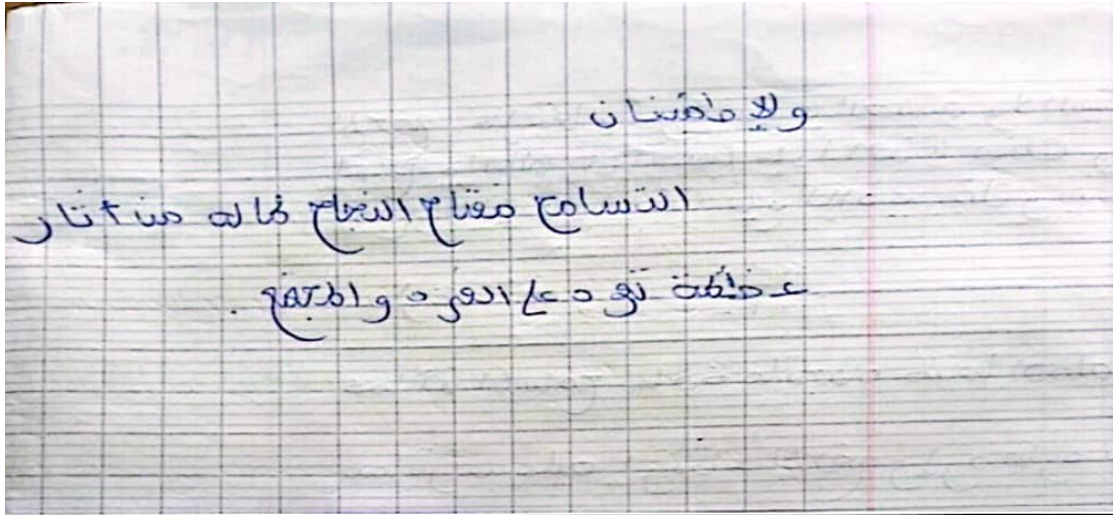 ولإطمئنان
التسامح مفتاح النجاح فماله من آثار
عظيمة تعود على الفرد والمجتمع .